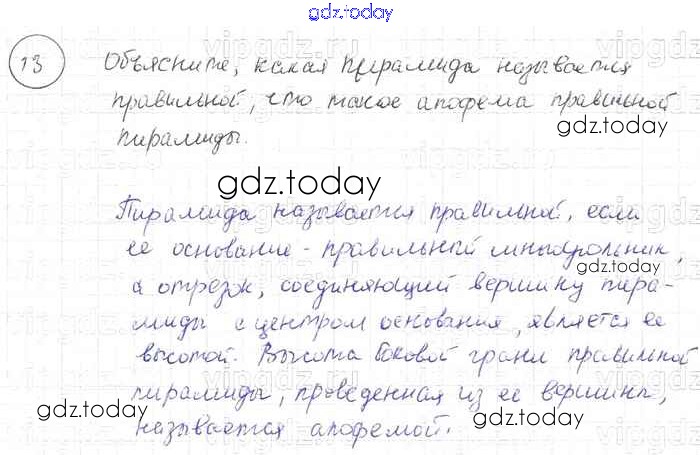 gdz.today
13 Объясните, какая пирамида называется
правильной, что такое апофема правильной
пирамиды.
gdz.today
gdz.today
Пирамида называется правильной, если
ее основание - правильный многоугольник,
gdz.today
а отрезок, соединяющий вершину пира-
миды с центром основания, является ее
gdz.today
высотой. Высота боковой грани правильной
пирамиды, проведенная из ее вершины,
gdz.today
gdz.today
называется апофемой.